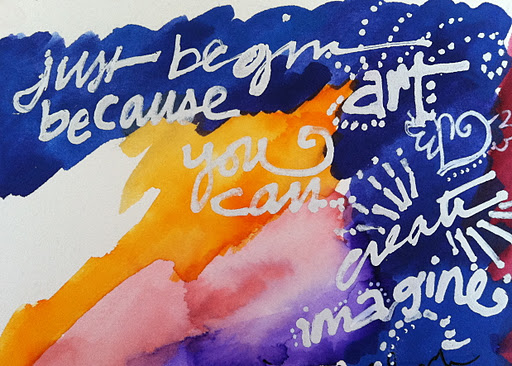 just begin
because
you
can
art
create
imagine